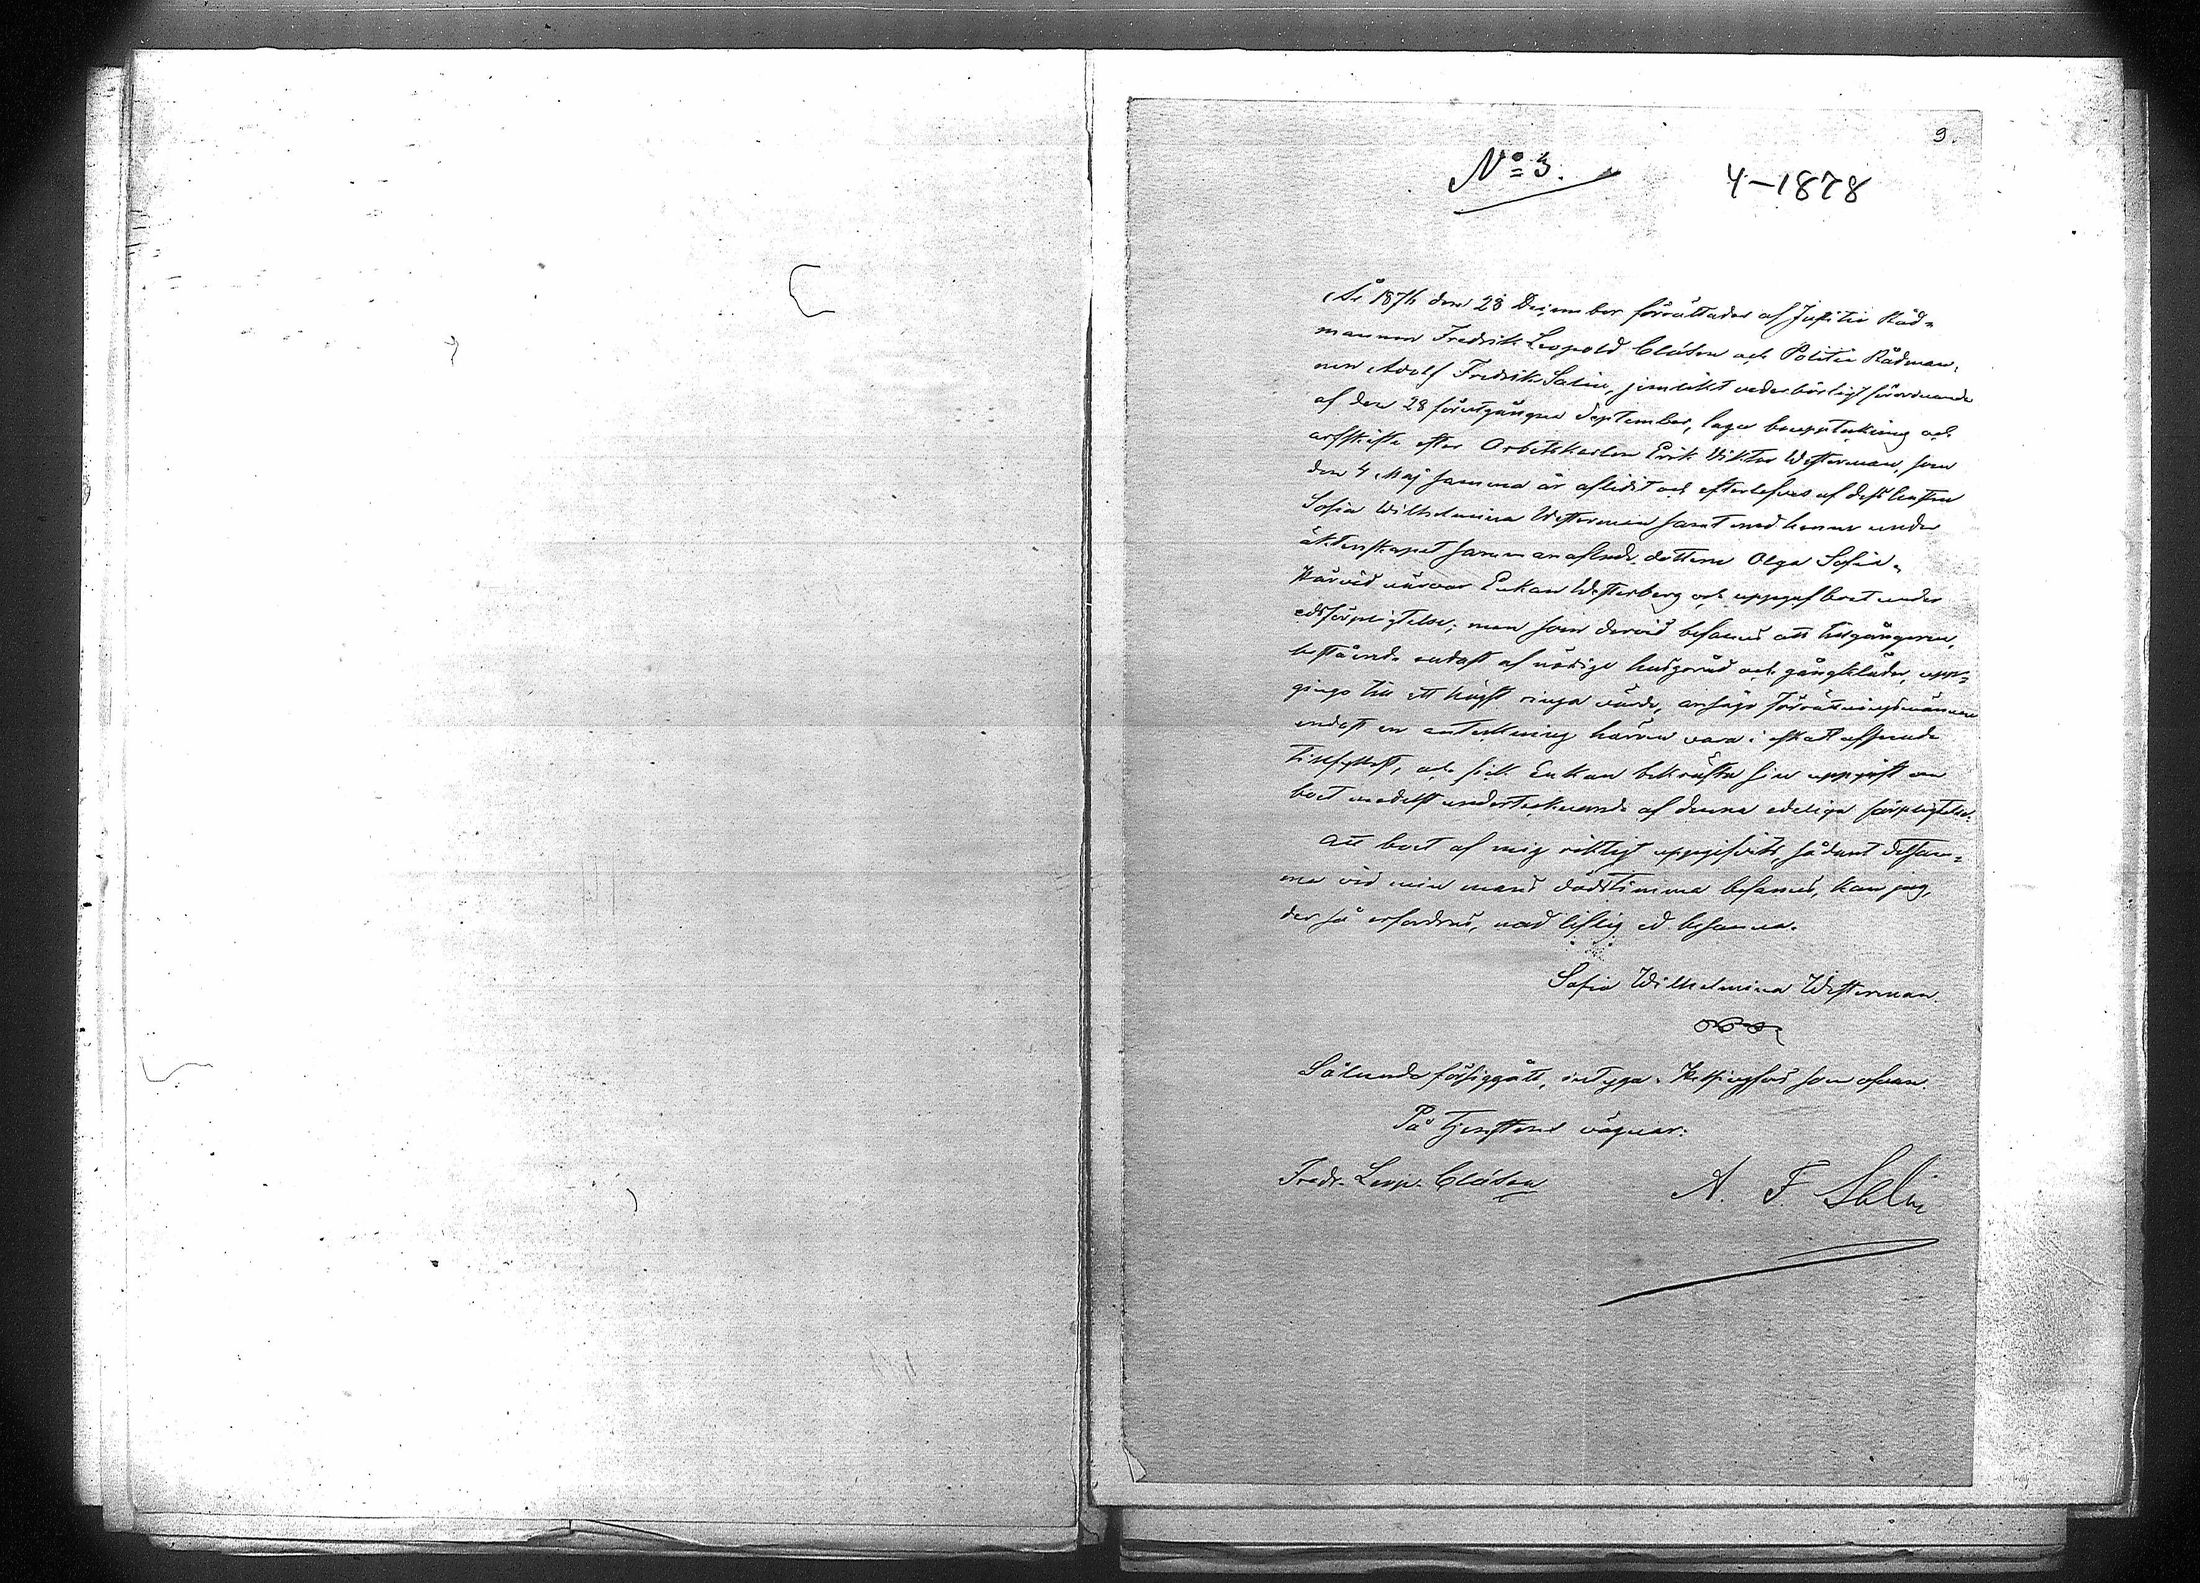 9.
No 3.
4-1878
År 1876 den 28 December förrättades af Justitie Råd-
mannen Fredrik Leopold Clásen och Politie Rådman-
nen Adolf Fredrik Salin, jemlikt vederbörligt förordnande
af den 28 förutgångne September, laga bouppteckning och
arfskifte efter Arbetskarlen Erik Viktor Westerman, som
den 4 Maj samma år aflidit och efterlefves af dess hustru
Sofia Wilhelmina Westerman samt med henne under
äktenskapet sammanaflade dottren Olga Sofia.
Härvid närvar Enkan Westerberg och uppgaf boet under
edsförpligtelse; men som dervid befanns att tillgångarne,
bestående endast af nödiga husgeråd och gångkläder, upp-
gingo till ett högst ringa värde, ansågo Förrättningsmännen
endast en anteckning härom vara i ofta afseende
tillfyllest, och fick Enkan bekräfta sin uppgift om
boet medelst undertecknande af denna edeliga förpligtelse:
Att boet af mig riktigt uppgifvits, sådant detsam-
ma vid min mans dödstimma befanns, kan jag,
der så erfordras, med liflig ed besanna.
Sofia Wilhelmina Westerman.
Sålunda försiggått, intyga. Helsingfors som ofvan.
På tjenstens vägnar:
Fredr. Leop. Clásen A. F. Salin